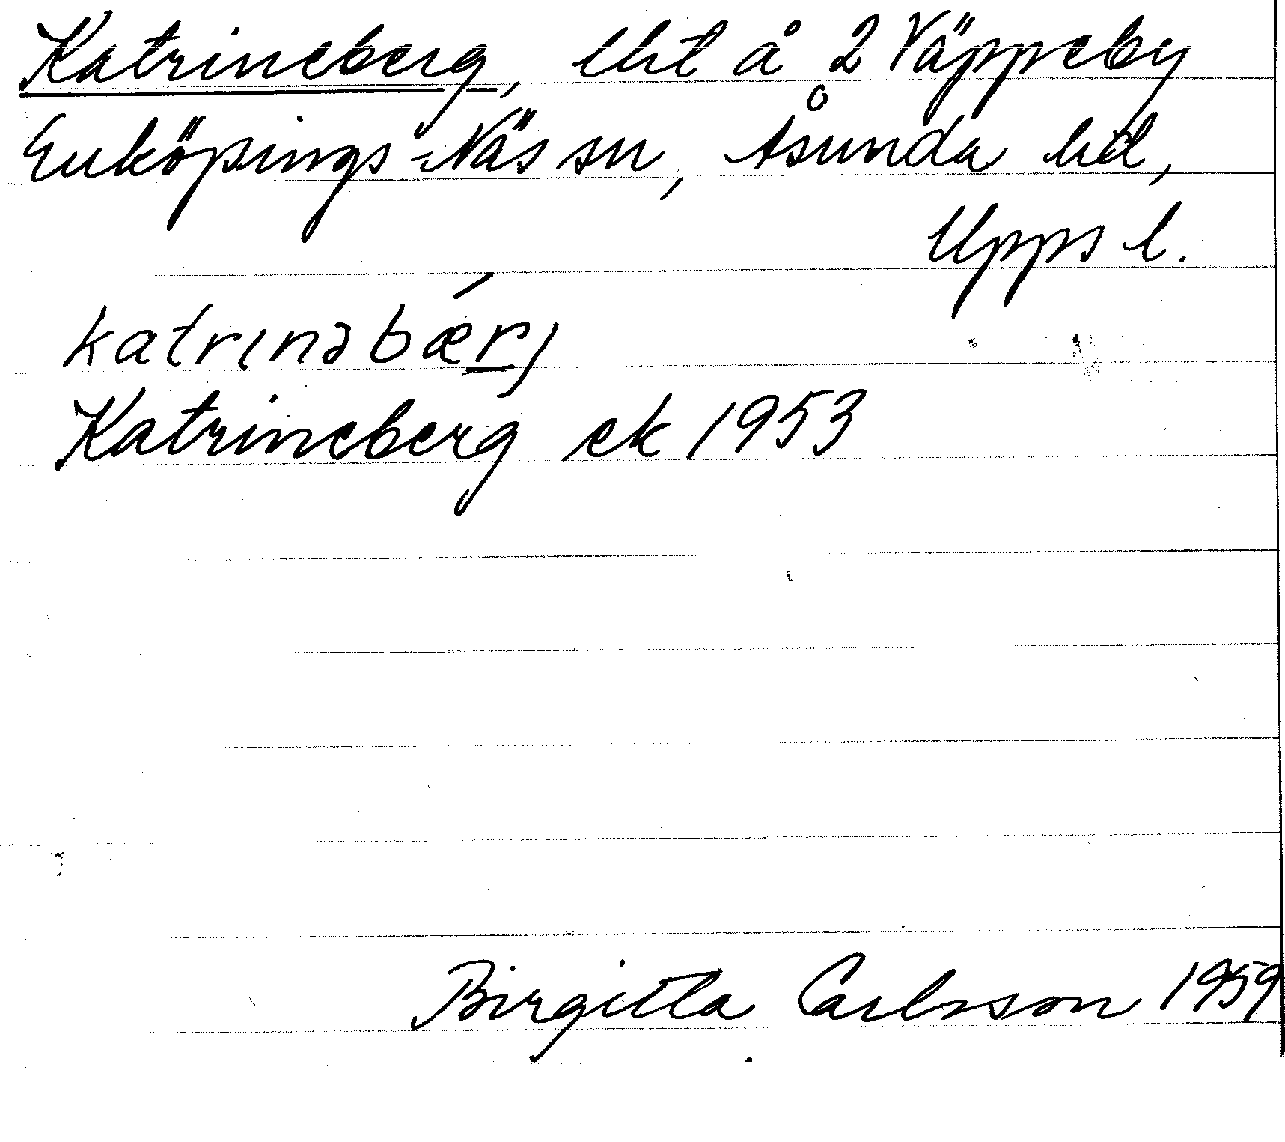 Katrineberg, lht å 2 Väppeby
Enköpings-Näs sn, Åsunda hd,
Upps l.
katrinəbær̲j
Katrineberg ek 1953
Birgitta Carlsson 1959